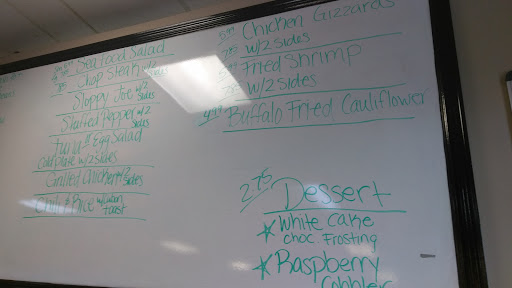 Seafood Salad
Chop Steak w/2
Sides
Sloppy Joe w/2
Sides
Stuffed Pepper w/2
Sides
Tuna & Egg Salad
Cold plate w/2 sides
Grilled Chicken w/2 sides
Chili & Rice
Toast
Chicken Gizzards
w/2 Sides
Fried Shrimp
w/2 Sides
Buffalo Fried Cauliflower
2.75 Dessert
White Cake
Choc. Frosting
Raspberry
Cobbler